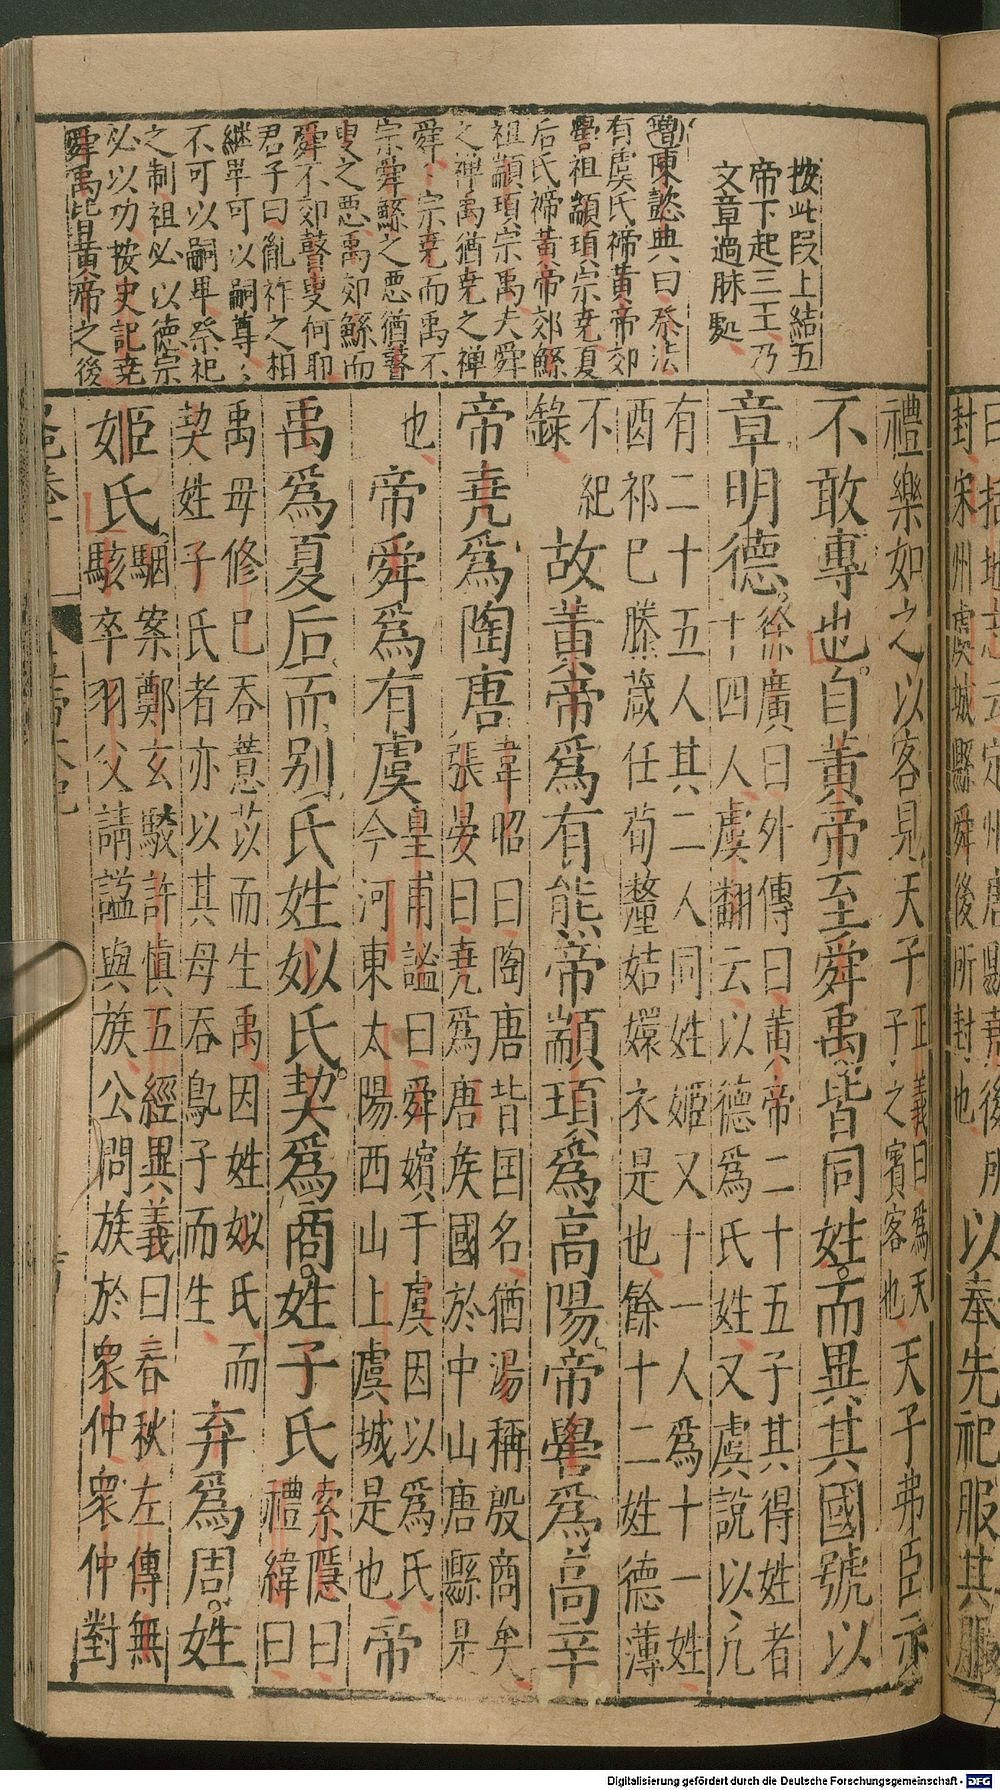 按此段上結五
帝下起三王乃
文章過脉處
陳懿典曰祭法
有虞氏禘黃帝郊
嚳祖顓頊宗堯夏
后氏禘黃帝郊鯀
祖顓頊宗禹夫舜
之禪禹猶堯之禪
舜舜宗堯而禹不
宗舜鯀之惡猶瞽
叟之惡禹郊鯀而
舜不郊瞽叟何耶
君子曰亂祚之相
繼單可以嗣尊尊
不可以嗣卑祭祀
之制祖必以德宗
必以功按史記堯
舜禹皆黃帝之後
禮樂如之以客見天子正義曰為天
子之賓客也天子弗臣示
不敢專也自黃帝至舜禹皆同姓而異其國號以
章明德徐廣曰外傳曰黃帝二十五子其得姓者
十四人虞翻云以德為氏姓又虞說以凢
有二十五人其二人同姓姬又十一人為十一姓
酉祁巳滕葴任荀釐姞嬛衣是也餘十二姓德薄
不紀
錄故黃帝為有熊帝顓頊為高陽帝嚳為高辛
帝堯為陶唐韋昭曰陶唐皆国名猶湯稱殷商矣
張晏曰堯為唐矦國於中山唐縣是
也帝舜為有虞皇甫謐曰舜嬪于虞因以為氏
今河東太陽西山上虞城是也帝
禹為夏后而别氏姓姒氏契為商姓子氏索隱曰
禮緯曰
禹母修巳吞薏苡而生禹因姓姒氏而
契姓子氏者亦以其母吞鳦子而生弃為周姓
姬氏駰案鄭玄駮許慎五經異義曰春秋左傳無
駭卒羽父請謚與族公問族於衆仲衆仲對
曰括地志云定州唐縣堯後所
封宋州虞城縣舜後所封也以奉先祀服其服
Digitalisierung gefördert durch die Deutsche Forschungsgemeinschaft - DFG